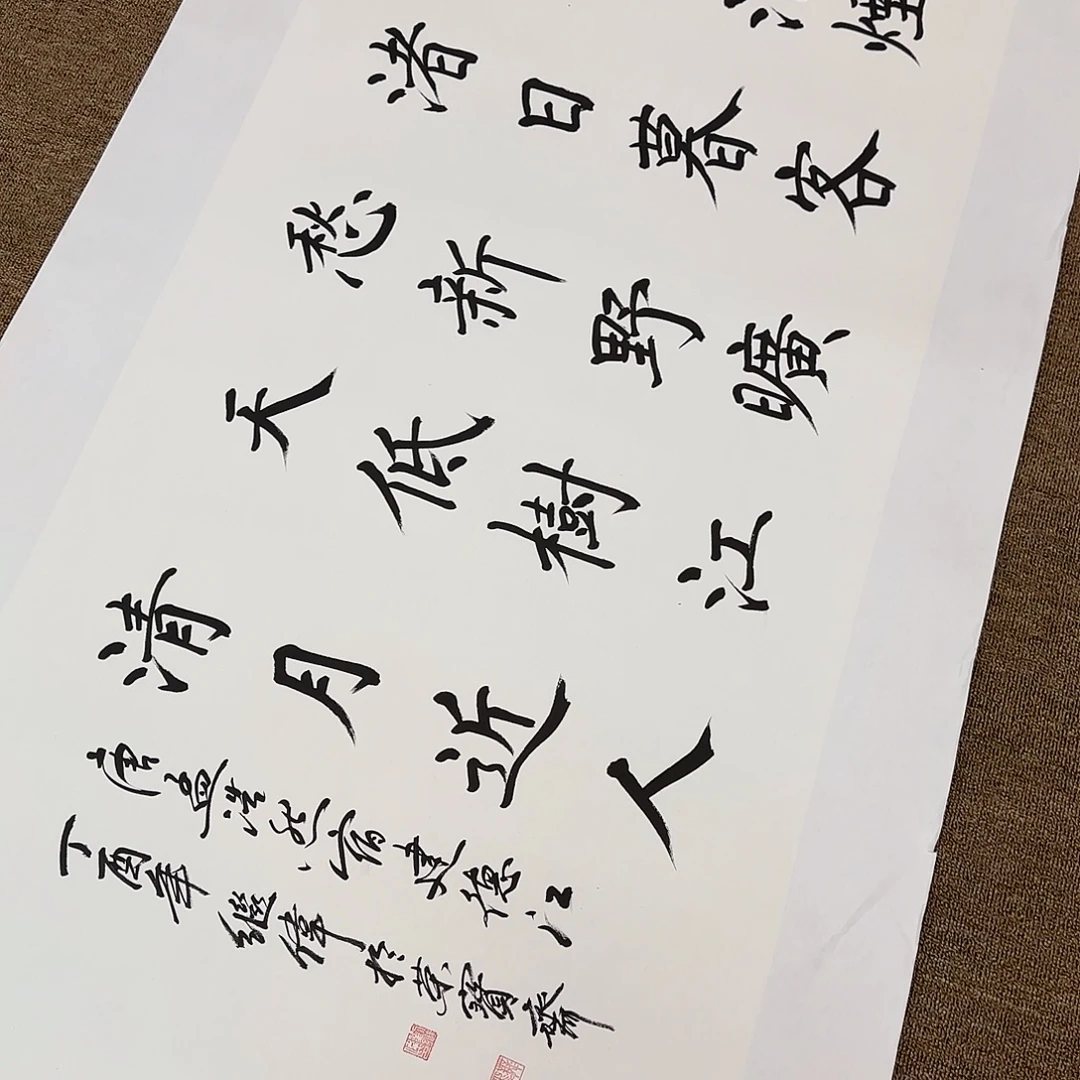 煙
渚日暮客
愁新野曠
天低樹江
清月近人
唐孟浩然宿建德江
丁酉年繼偉於榮寶齋